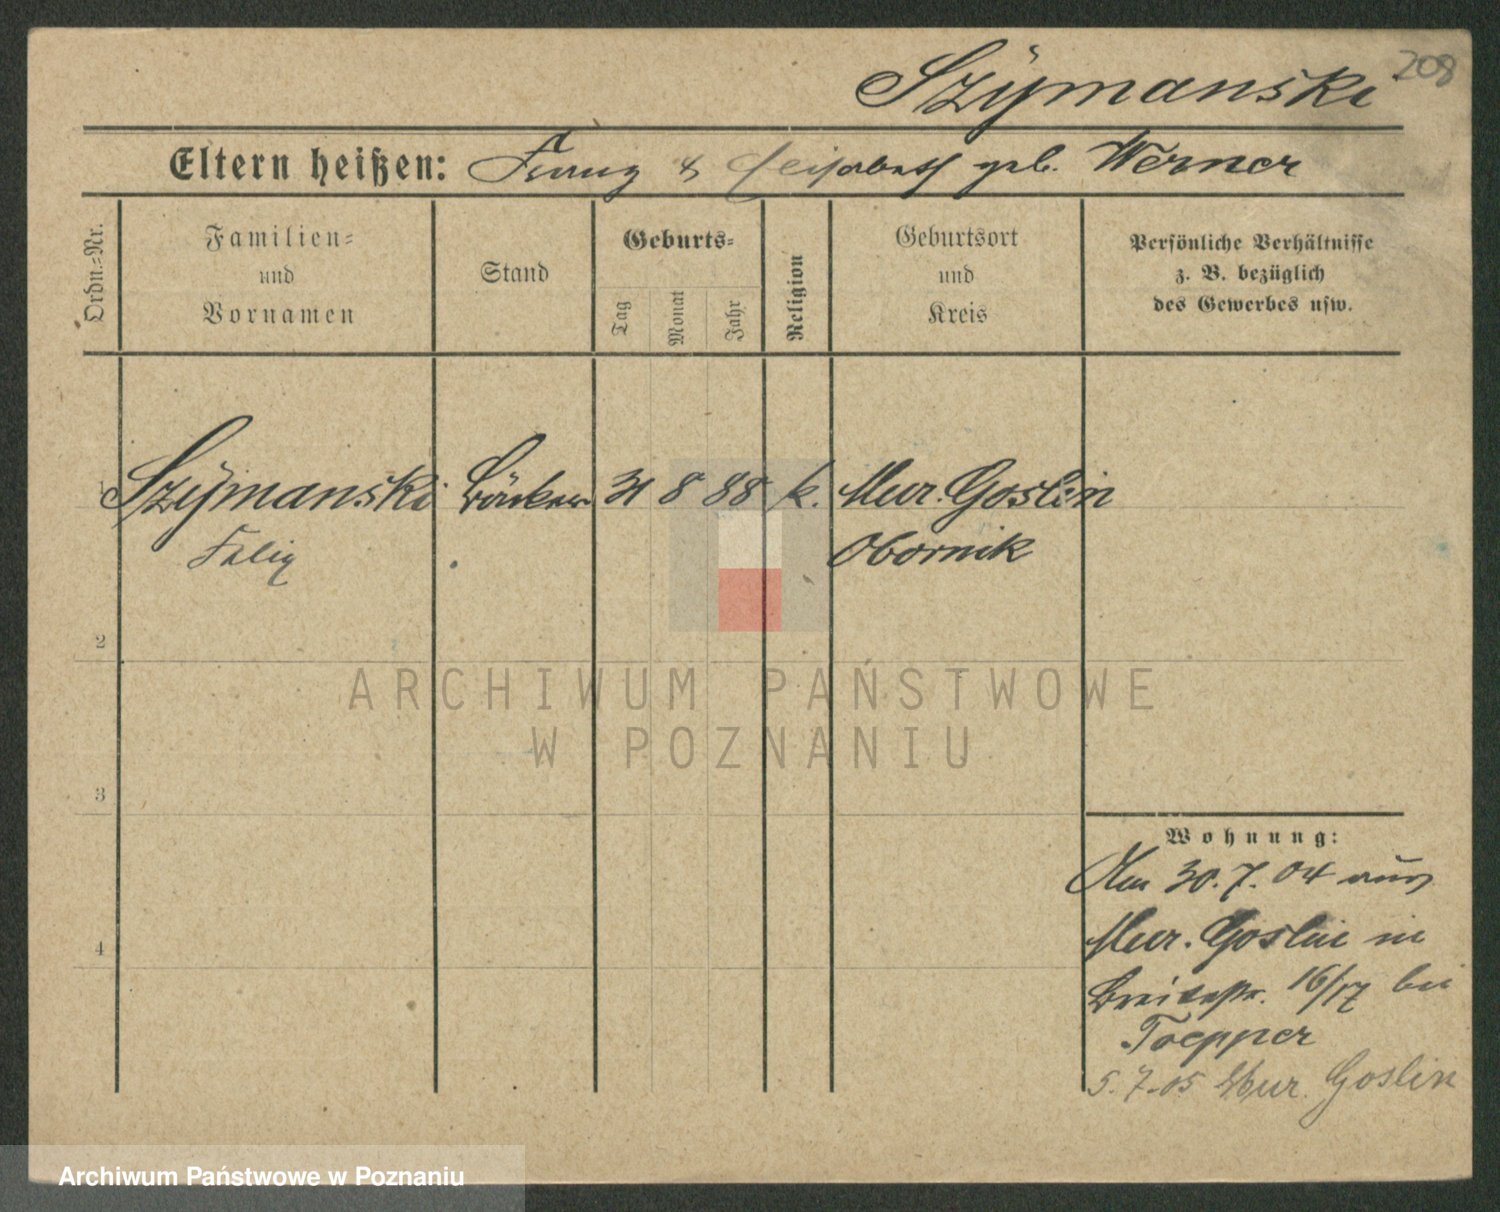 208
Szÿmanski
Eltern heißen: Franz & Elisabeth geb. Werner
Ordn.=Nr.
Familien=
und
Vornamen
Stand
Geburts=
Tag
Monat
Jahr
Religion
Geburtsort
und
Kreis
Persönliche Verhältnisse
z. B. bezüglich
des Gewerbes usw.
1 Szÿmanski Bäcker 31 8 88 k. Mur. Goslin
Felix Obornik
2
ARCHIWUM PAŃSTWOWE
W POZNANIU
3
Wohnung:
Am 30.7.04 aus
4
Mur. Goslin in
Breitestr. 16/17 bei
Toepper
5.7.05 Mur. Goslin
Archiwum Państwowe w Poznaniu